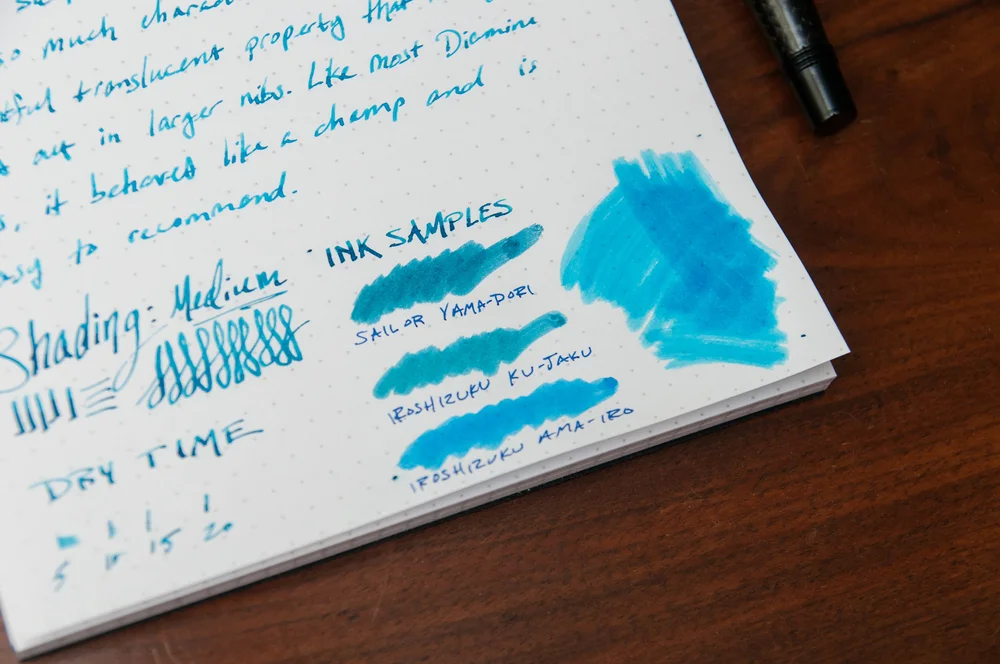 so much
translucent property that
out in larger nibs. Like most Diamine
it behaves like a champ and is
to recommend.
Shading: Medium
INK SAMPLES
SAILOR YAMA-DORI
IROSHIZUKU KU-JAKU
IROSHIZUKU AMA-IRO
DRY TIME
5 10 15 20